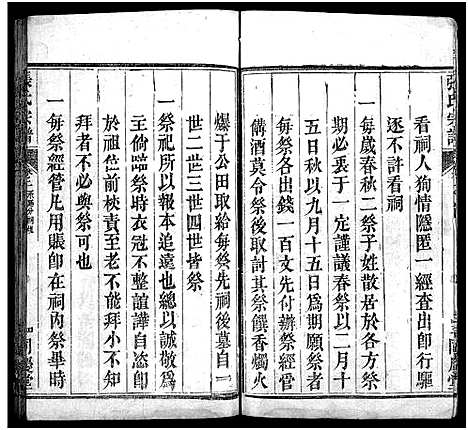 張氏宗譜
看祠人狗情隱匿一經查出即行驅
逐不許看祠
一每歲春秋二祭子姓散居於各方祭
期必丟于一定謹議春祭以二月十
五日秋以九月十五日為期願祭者
每祭各出錢一百文先付辦祭經管
備酒莫令祭後取討其祭饌香燭火
爆于公田取給每祭先祠後墓自一
世二世三世四世皆祭
一祭祀所以報本追遠也總以誠敬為
主倘臨祭時衣冠不整諠譁自恣即
於祖位前杖責至老不能拜小不能
拜者不必與祭可也
一每祭經管凡用賬即在祠內祭畢時
張氏宗譜